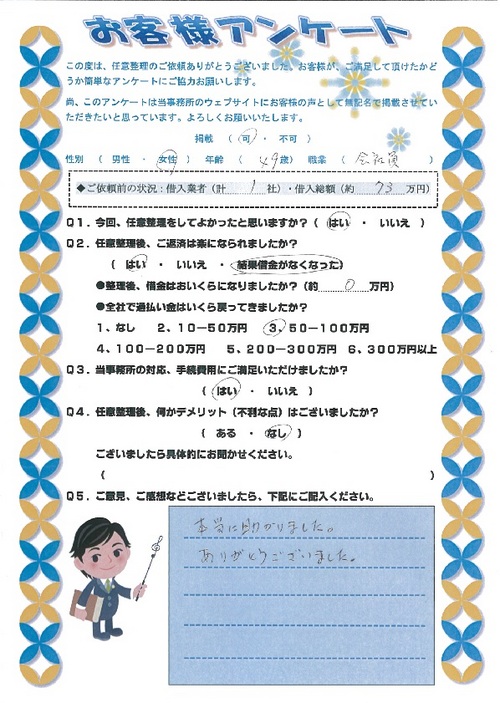 お客様アンケート
この度は、任意整理のご依頼ありがとうございました。お客様が、ご満足して頂けたかど
うか簡単なアンケートにご協力お願いします。
尚、このアンケートは当事務所のウェブサイトにお客様の声として無記名で掲載させてい
ただきたいと思っています。よろしくお願いいたします。
掲載 ( 可 ・ 不可 )
性別 ( 男性 ・ 女性 ) 年齢 ( 49歳 ) 職業 ( 会社員 )
◆ご依頼前の状況：借入業者（計 1 社）・借入総額（約 73 万円）
Q1．今回、任意整理をしてよかったと思いますか？（ はい ・ いいえ ）
Q2．任意整理後、ご返済は楽になられましたか？
（ はい ・ いいえ ・ 結果借金がなくなった）
●整理後、借金はおいくらになりましたか？（約 0 万円）
●全社で過払い金はいくら戻ってきましたか？
1、なし 2、10－50万円 3、50－100万円
4、100－200万円 5、200－300万円 6、300万円以上
Q3．当事務所の対応、手続費用にご満足いただけましたか？
（ はい ・ いいえ ）
Q4．任意整理後、何かデメリット（不利な点）はございましたか？
（ ある ・ なし ）
ございましたら具体的にお聞かせください。
（ ）
Q5．ご意見、ご感想などございましたら、下記にご記入ください。
本当に助かりました。
ありがとうございました。